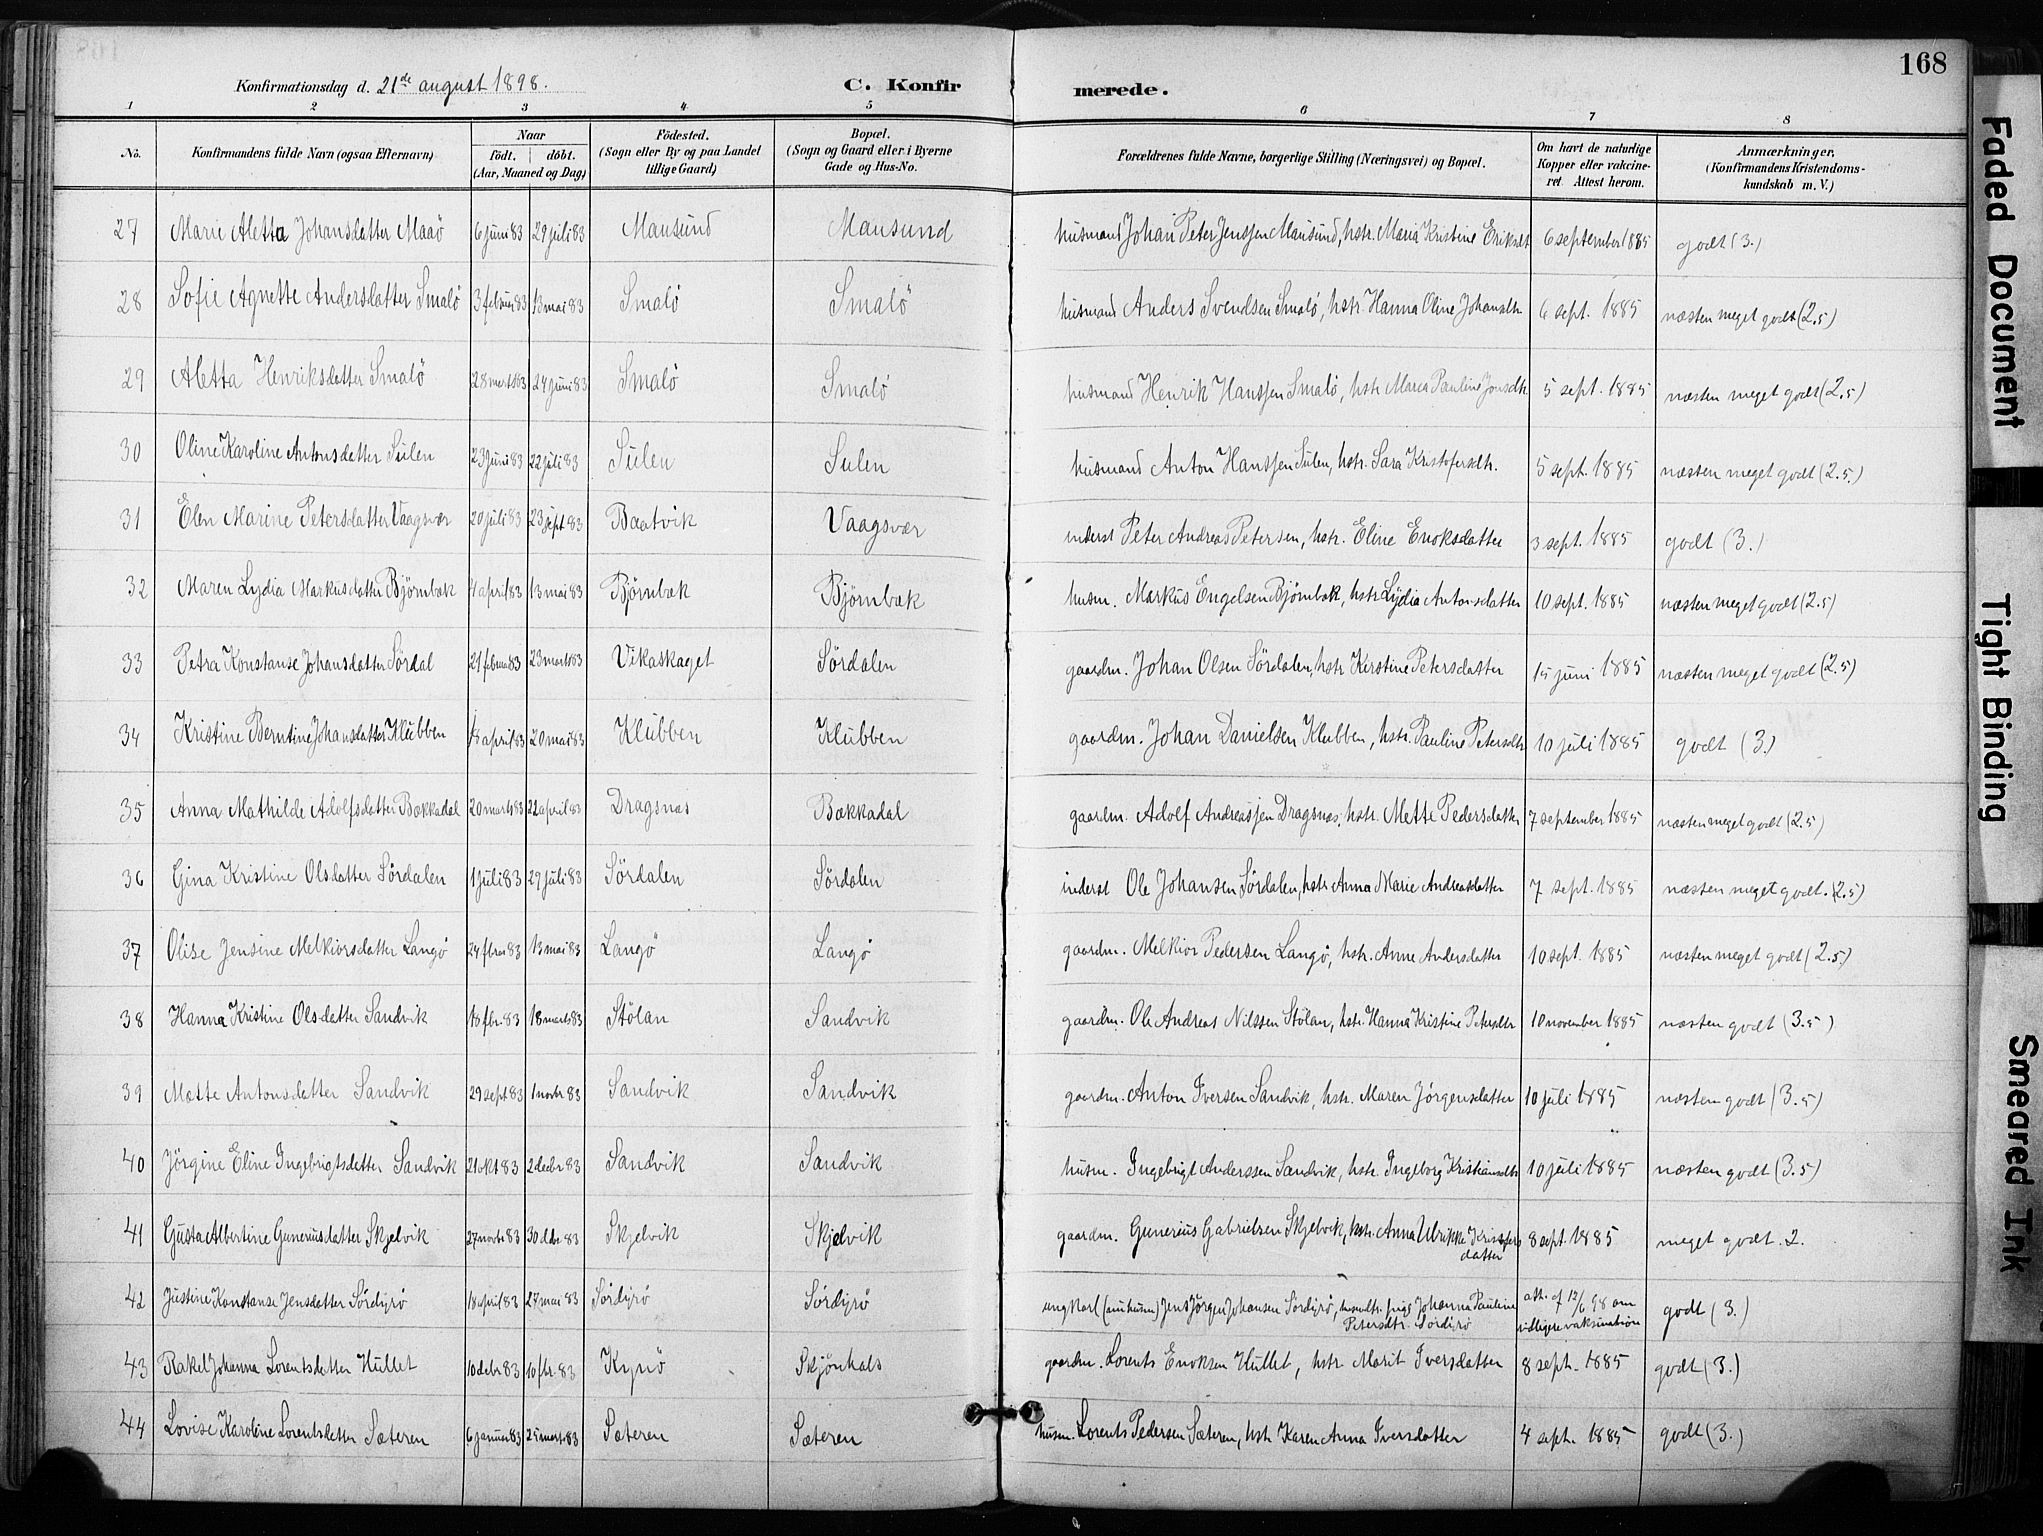 168
Konfirmationsdag d. 21de august 1898. C. Konfirmerede.
1 2 3 4 5 6 7 8
No. Konfirmandens fulde Navn (ogsaa Efternavn) Naar födt. döbt. (Aar, Maaned og Dag) Födested. (Sogn eller By og paa Landet tillige Gaard) Bopæl. (Sogn og Gaard eller i Byerne Gade og Hus-No. Forældrenes fulde Navne, borgerlige Stilling (Næringsvei) og Bopæl. Om havt de naturlige Kopper eller vakcineret. Attest herom. Anmærkninger. (Konfirmandens Kristendomskundskab m. V.)
27 Marie Aletta Johansdatter Maaö 6 juni 83 29 juli 83 Mausund Mausund husmand Johan Peter Jenssen Mausund, hstr. Maria Kristine Eriksdt 6 september 1885 godt (3.)
28 Sofie Agnette Andersdatter Smalö 3 februar 83 13 mai 83 Smalö Smalö husmand Anders Svendsen Smalö, hstr. Hanna Oline Johansdtr 6 sept. 1885 næsten meget godt (2.5)
29 Aletta Henriksdatter Smalö 28 marts 83 24 juni 83 Smalö Smalö husmand Henrik Hanssen Smalö, hstr. Maria Pauline Jonsdtr. 5 sept. 1885 næsten meget godt (2.5)
30 Oline Karoline Antonsdatter Sulen 23 juni 83 22 juli 83 Sulen Sulen husmand Anton Hanssen Sulen, hstr. Sara Kristofersdtr. 5 sept. 1885 næsten meget godt (2.5.)
31 Elen Marine Petersdatter Vaagsvær 20 juli 83 23 sept 83 Baatvik Vaagsvær inderst Peter Andreas Petersen, hstr. Eline Enoksdatter 3 sept. 1885 godt (3.)
32 Maren Lydia Markusdatter Björnbæk 4 april 83 13 mai 83 Björnbæk Björnbæk husm. Markus Engelsen Björnbæk, hstr Lydia Antonsdatter 10 sept. 1885 næsten meget godt (2.5)
33 Petra Konstanse Johansdatter Sördal 21 februar 83 23 marts 83 Vikaskaget Sördalen gaardm. Johan Olsen Sördalen, hstr Kirstine Petersdatter 15 juni 1885 næsten meget godt (2.5)
34 Kristine Berntine Johansdatter Klubben april 83 20 mai 83 Klubben Klubben gaardm. Johan Danielsen Klubben, hstr. Pauline Petersdtr 10 juli 1885 godt (3.)
35 Anna Mathilde Adolfsdatter Bækkadal 20 marts 83 22 april 83 Dragsnæs Bækkadal gaardm. Adolf Andreassen Dragsnæs, hstr. Mette Pedersdatter 7 september 1885 næsten meget godt (2.5)
36 Gina Kristine Olsdatter Sördalen 1 juli 83 29 juli 83 Sördalen Sördalen inderst Ole Johansen Sördalen, hstr Anna Marie Andreasdatter 7 sept. 1885 næsten meget godt. (2.5)
37 Olise Jensine Melkiorsdatter Langö 24 fbrar 83 13 mai 83 Langö Langö gaardm. Melkior Pedersen Langö, hstr. Anne Andersdatter 10 sept. 1885 næsten meget godt (2.5)
38 Hanna Kristine Olsdatter Sandvik 18 fbr. 83 18 marts 83 Stölan Sandvik gaardm. Ole Andreas Nilssen Stölan, hstr. Hanna Kristine Petersdtr 10 november 1885 næsten godt (3.5)
39 Mette Antonsdatter Sandvik 29 sept 83 1 novbr 83 Sandvik Sandvik gaardm. Anton Iversen Sandvik, hstr. Maren Jörgensdatter 10 juli 1885 næsten godt (3.5)
40 Jörgine Eline Ingebrigtsdatter Sandvik 21 okt 83 2 decbr 83 Sandvik Sandvik husm. Ingebrigt Anderssen Sandvik, hstr. Ingeborg Kristiansdtr 10 juli 1885 næsten godt (3.5)
41 Gusta Albertine Guneriusdatter Skjelvik 27 novbr 83 30 dcbr 83 Skjelvik Skjelvik gaardm. Gunerius Gabrielsen Skjelvik, hstr. Anna Ulrikke Kristofers
datter 8 sept. 1885 meget godt. 2.
42 Justine Konstanse Jensdatter Sördyrö 18 april 83 27 mai 83 Sördyrö Sördyrö ungkarl (nu husm) Jens Jörgen Johansen Sördyrö, pige Johanna Pauline
Petersdtr. Sördyrö att. af 12/6 98 om
tidligere vaksination godt (3.)
43 Rakel Johanna Lorentsdatter Hullet 10 decbr 83 10 fbr. 83 Kynö Skjönhals gaardm. Lorents Enoksen Hullet, hstr. Marit Iversdatter 8 sept. 1885 godt (3.)
44 Lovise Karoline Lorentsdatter Sæteren 6 januar 83 25 marts 83 Sæteren Sæteren husm. Lorents Pedersen Sæteren, hstr Karen Anna Iversdatter 4 sept. 1885 godt (3.)
Faded Document
Tight Binding
Smeared Ink